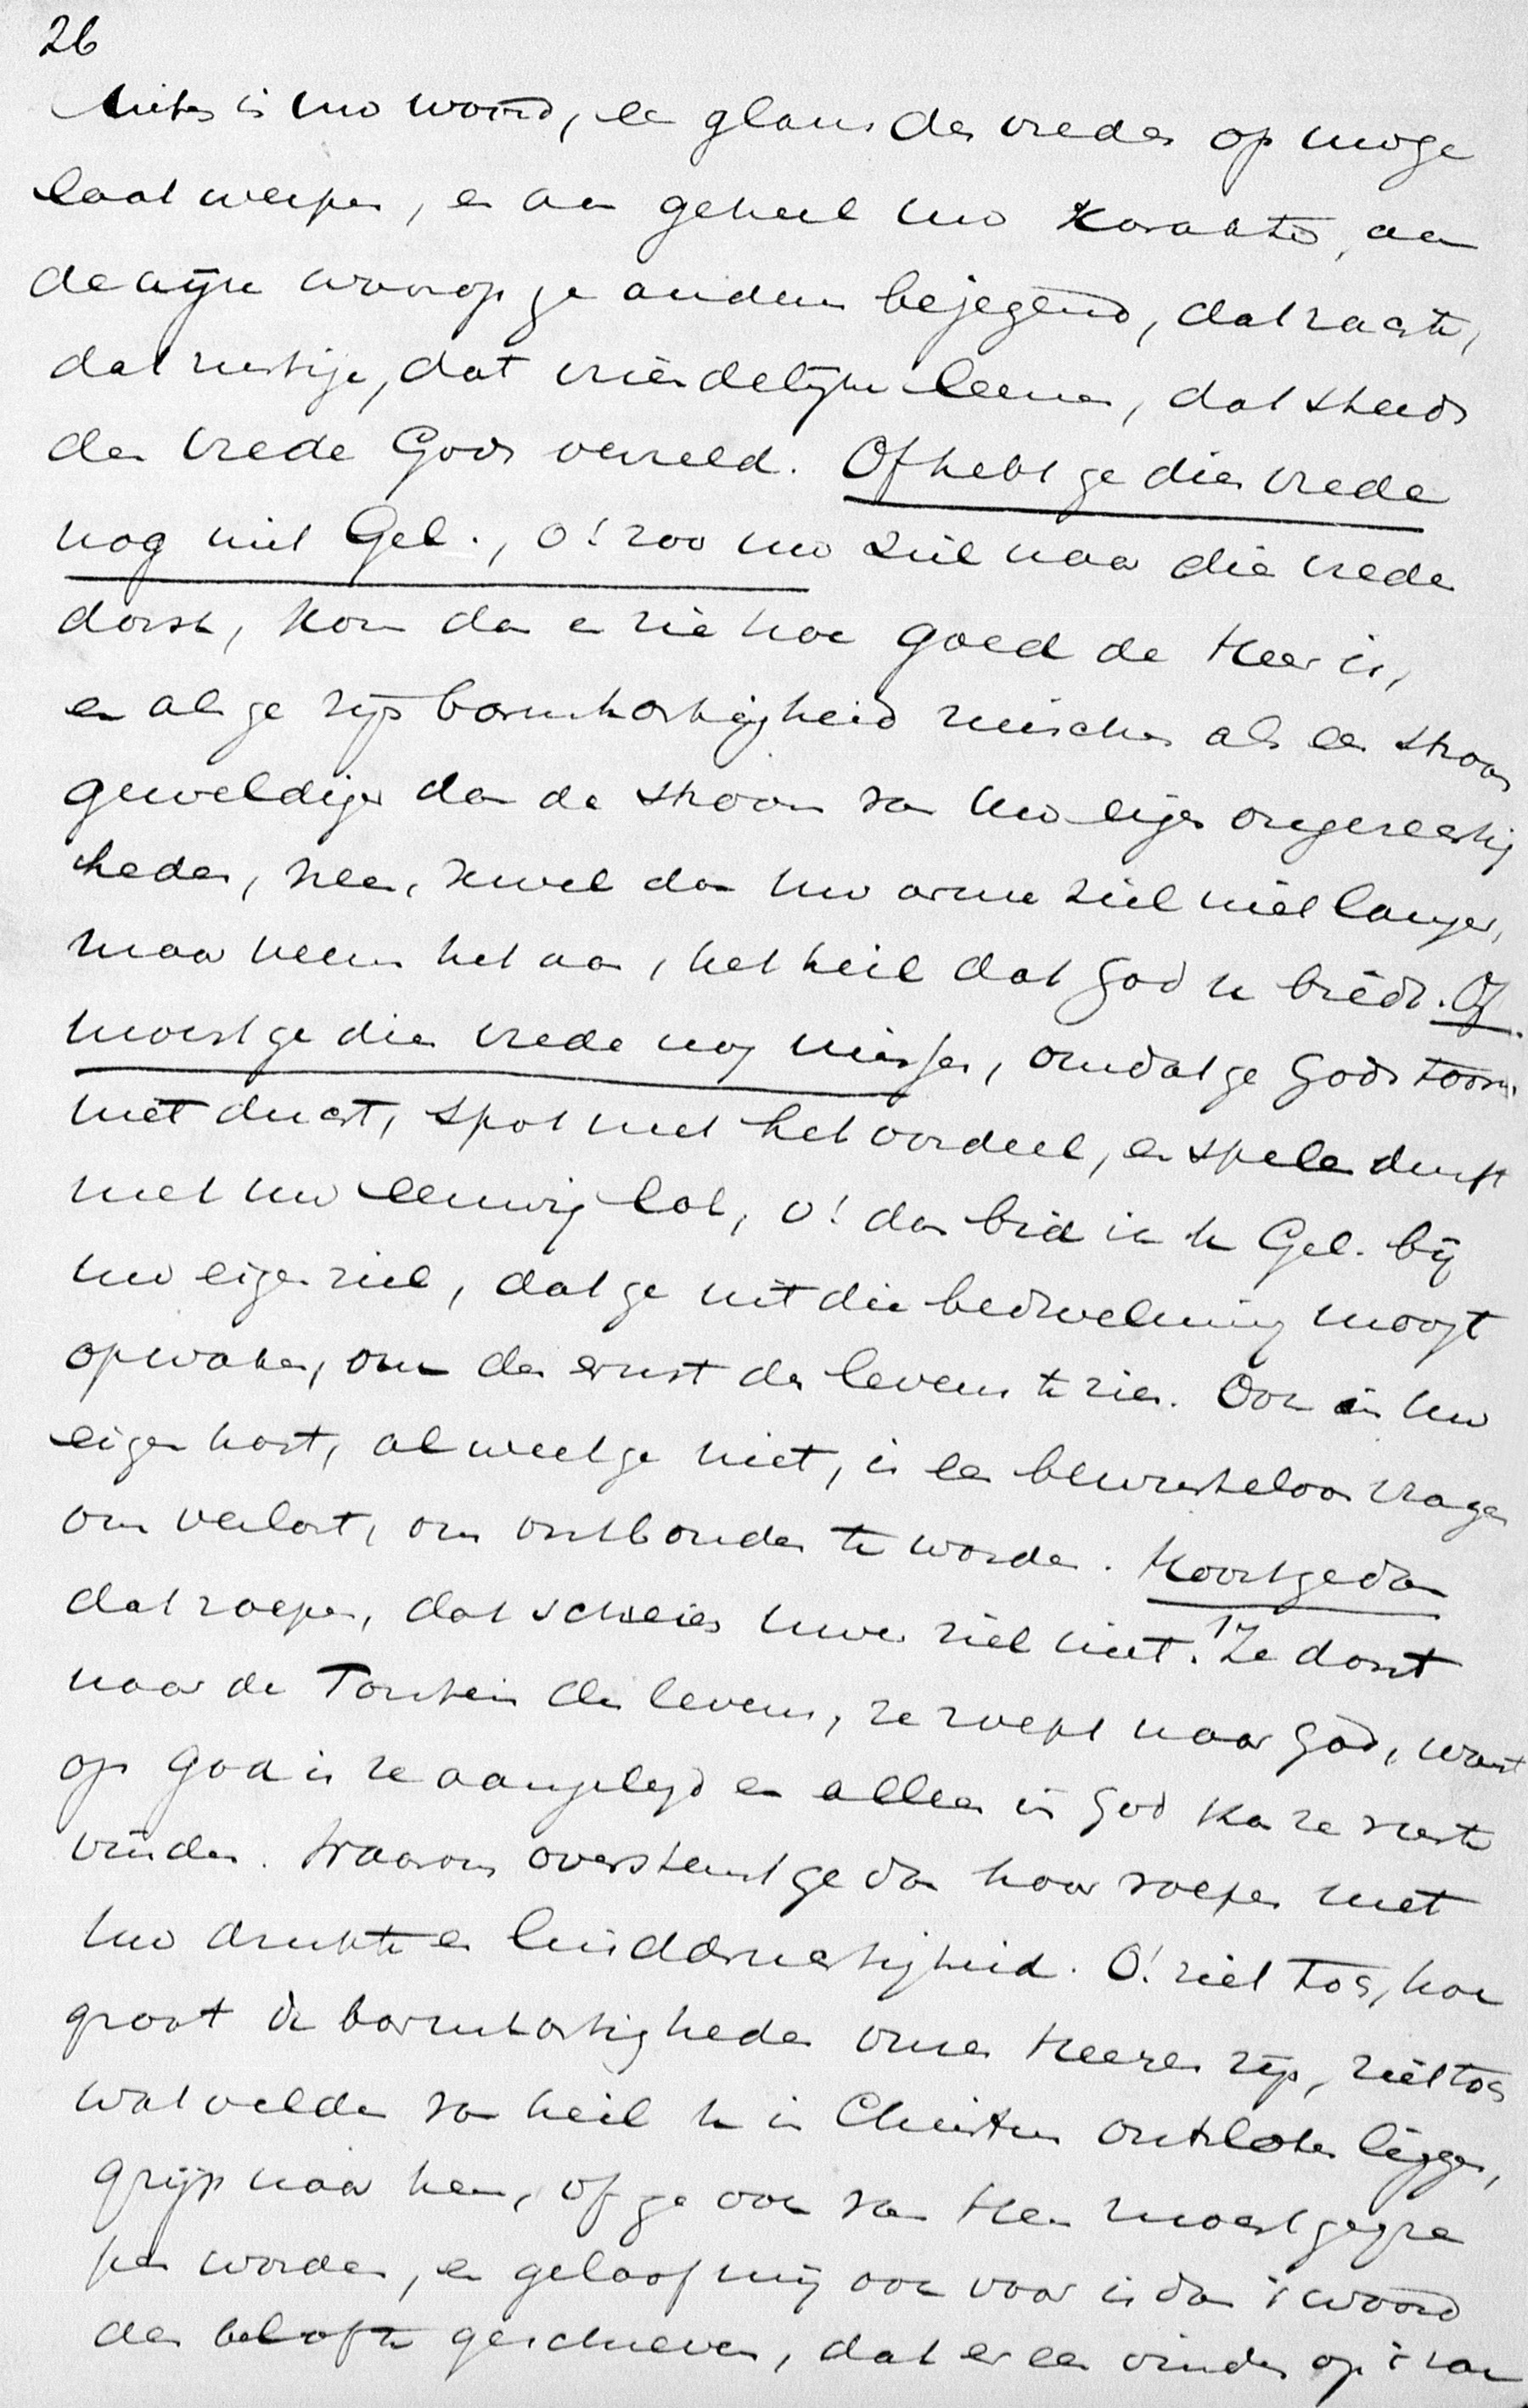 26
uiten is uw woord, een glans des vredes op uwe
laat werpen, en aan geheel uw karakter, aan
de wijze waarop ge anderen bejegend, dat zachte,
dat rustige, dat vriendelijke leenen, dat steeds
den vrede Gods verzeld. Of hebt ge dien vrede
nog niet Gel., o! zoo uw ziel naar die vrede
dorst, kom dan en zie hoe goed de Heer is,
en als ge zijn barmhartigheid ruischen als een stroom
geweldiger dan de stroom van uw eigen ongerechtig
heden, neen, kwel dan uw arme ziel niet langer,
maar neem het aan, het heil dat God u biedt. Of
moest ge dien vrede nog missen, omdat ge Gods toorn
niet ducht, spot met het oordeel, en spelen durft
met uw eeuwig lot, o! dan bid ik u Gel. bij
uw eigen ziel, dat ge uit die bedwelming moogt
opwaken, om den ernst des levens te zien. Ook in uw
eigen hart, al weet ge niet, is een bewusteloos vragen
om verlost, om ontbonden te worden. Hoort ge dan
dat roepen, dat schreien uwer ziel niet. Ze dorst
naar de Fontein des levens, ze roept naar God, want
op God is ze aangelegd en alleen in God kan ze rust
vinden. Waarom overstemt ge dan haar roepen met
uw drukte en luiddruchtigheid. O! ziet toch, hoe
groot de barmhartigheden onzes Heeren zijn, ziet toch
wat velden van heil u in Christus ontsloten liggen,
grijp naar hem, of ge ook van Hem moest gegre
pen worden, en geloof mij ook voor u is dan 't woord
der belofte geschreven, dat er een vinden op 't zoe